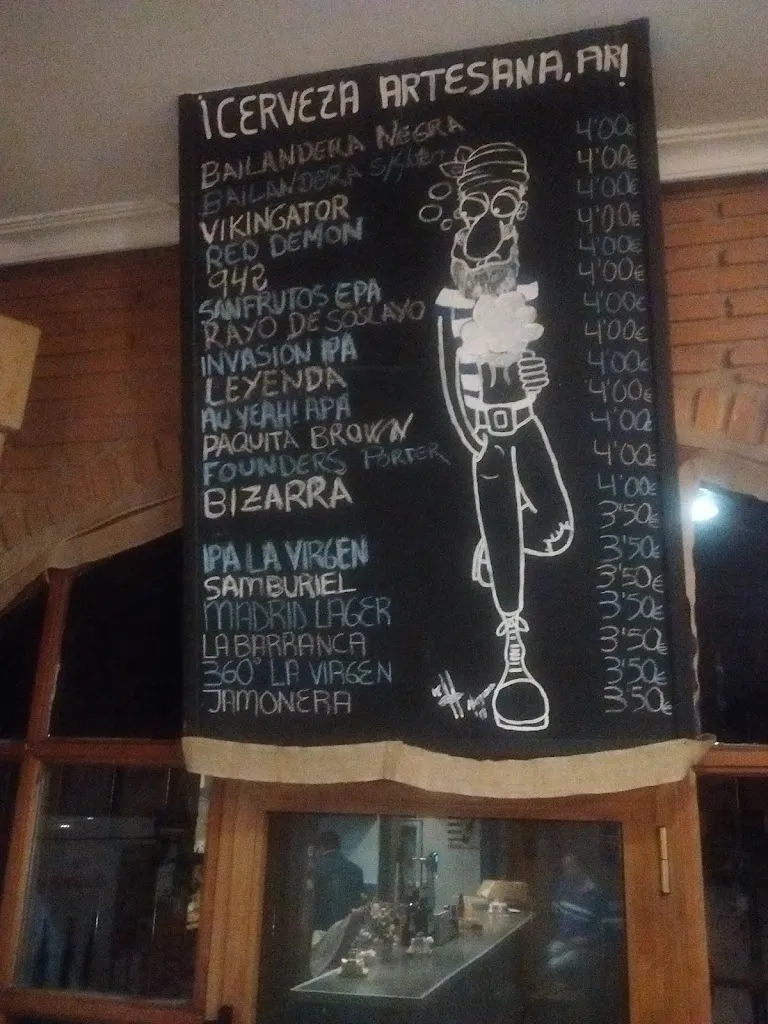 ¡CERVEZA ARTESANA, AR!
BAILANDERA NEGRA 4'00€
BAILANDERA 4'00€
VIKINGATOR 4'00€
RED DEMON 4'00€
942 4'00€
SANFRUTOS EPA 4'00€
RAYO DE SOSLAYO 4'00€
INVASION IPA 4'00€
LEYENDA 4'00€
AU YEAH! APA 4'00€
PAQUITA BROWN 4'00€
FOUNDERS PORTER 4'00€
BIZARRA 4'00€
3'50€
IPA LA VIRGEN 3'50€
SAMBURIEL 3'50€
MADRID LAGER 3'50€
LA BARRANCA 3'50€
360° LA VIRGEN 3'50€
JAMONERA 3'50€